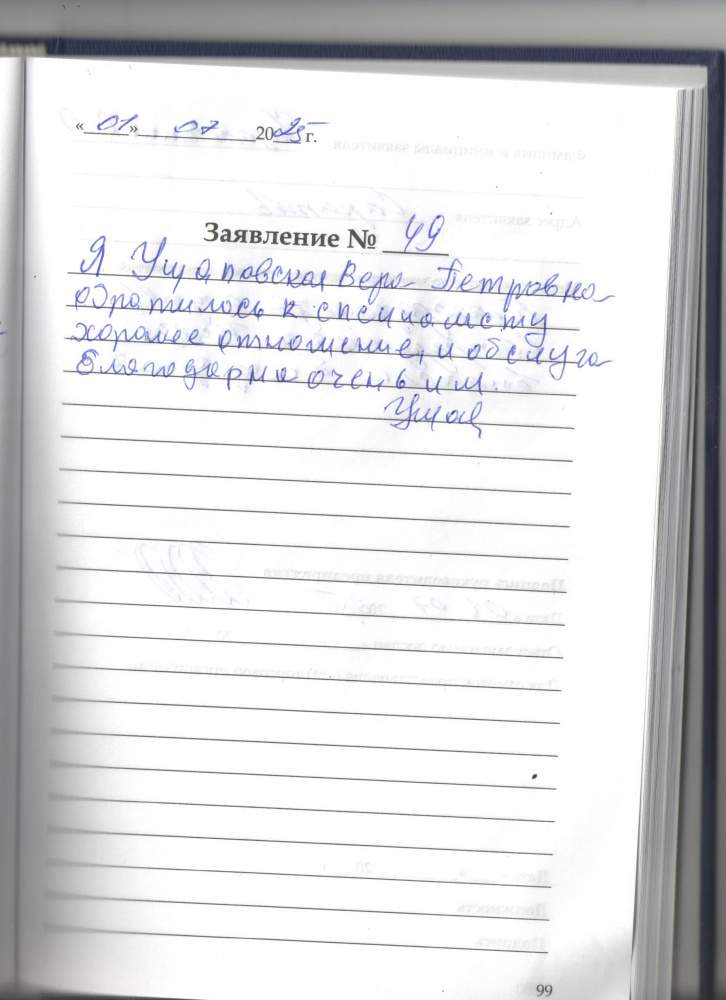 « 01 » 07 2025 г.
Заявление № 49
Я Ушаповская Вера Петровна
обратилось к специалисту
хорошее отношение, и обслуга
благодарна очень им.
99